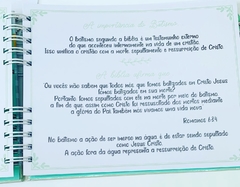 O batismo segundo a bíblia é um testemunho externo
do que aconteceu internamente na vida de um cristão.
Isso unifica o cristão com a morte sepultamento e ressurreição de Cristo
Ou vocês não sabem que todos nós que fomos batizados em Cristo Jesus
fomos batizados em sua morte?
Portanto fomos sepultados com ele na morte por meio do batismo,
a fim de que, assim como Cristo foi ressuscitado dos mortos mediante
a glória do Pai também nós vivamos uma vida nova
Romanos 6:3-4
No batismo a ação de ser imerso na água é de estar sendo sepultado
como Jesus Cristo
A ação fora da água representa a ressurreição de Cristo